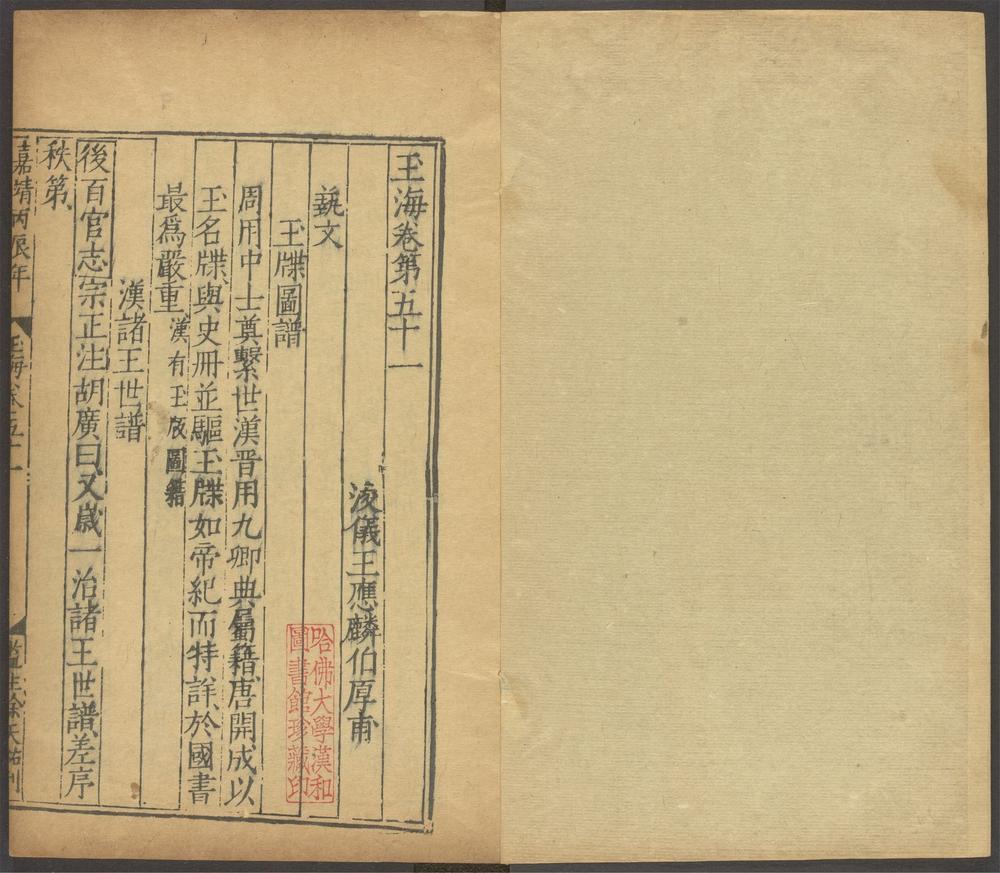 玉海卷第五十一
浚儀王應麟伯厚甫
藝文
玉牒圖譜
周用中士奠繫世漢晋用九卿典屬籍唐開成以
玉名牒與史冊並驅玉牒如帝紀而特詳於國書
最爲嚴重漢有玉版圖籍
漢諸王世譜
後百官志宗正注胡廣曰又歲一治諸王世譜差序
秩第
嘉靖丙辰年
玉海卷五十一
監生徐天祐刊
哈佛大學漢和
圖書館珍藏印